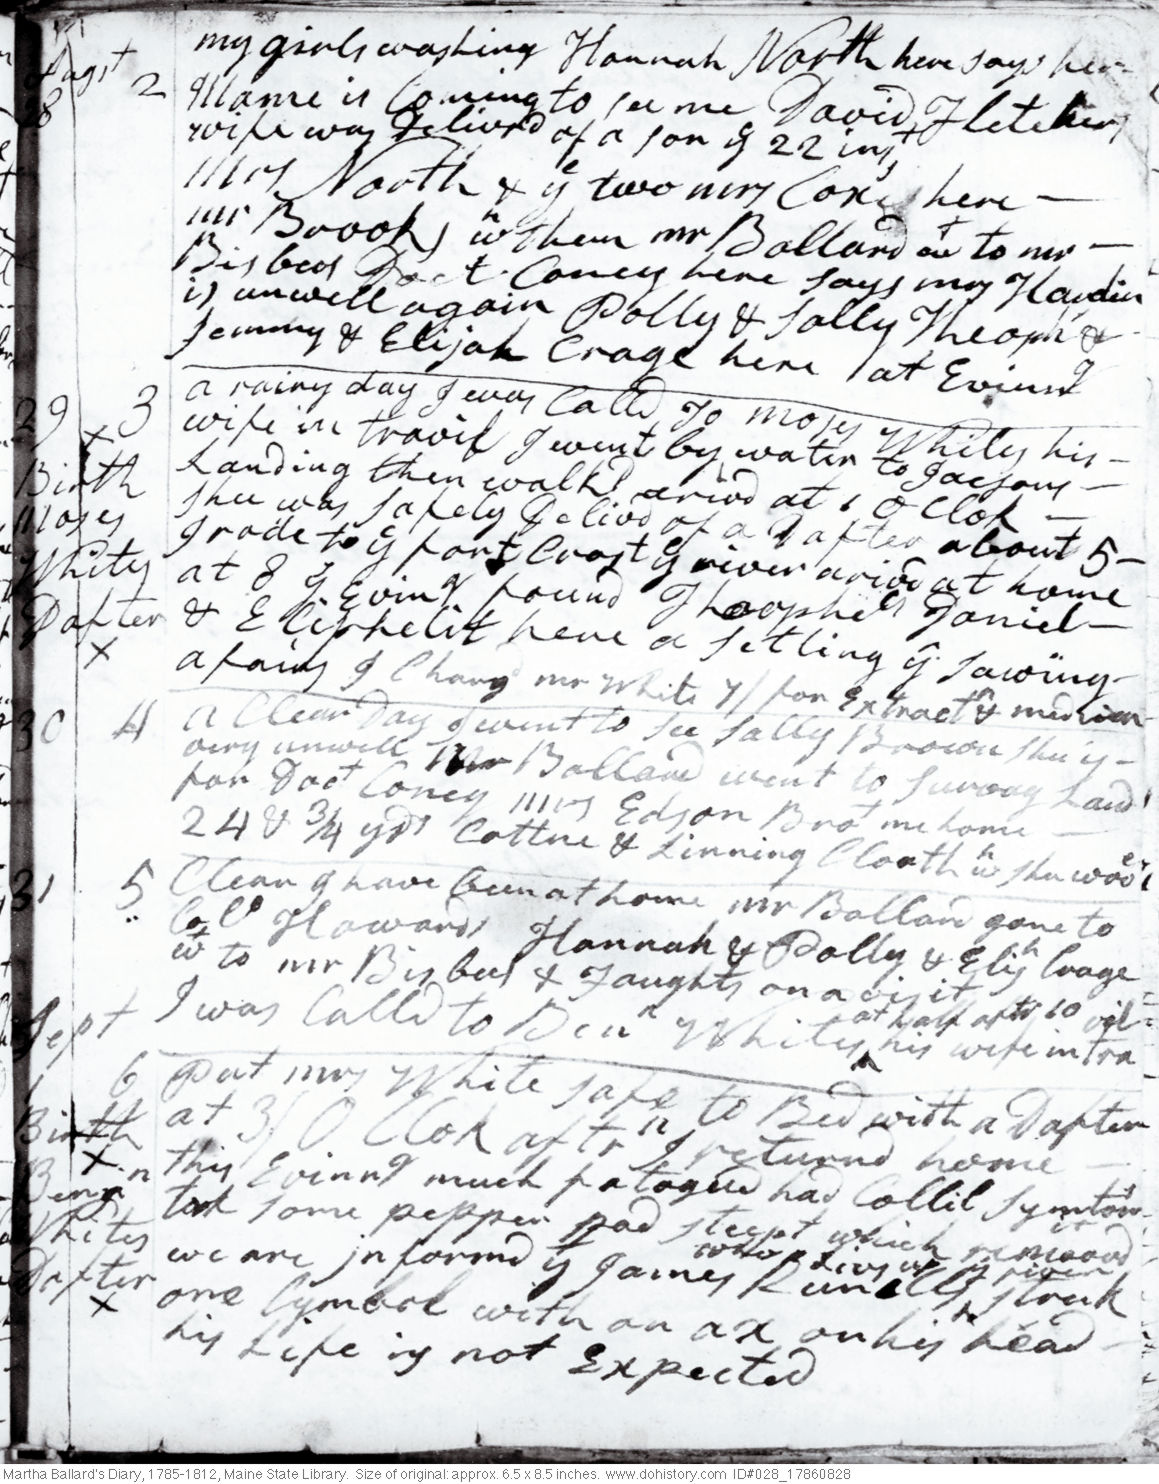 my girls washing Hannah North here says her
Augst 28 2 Mame is Coming to see me David Fletchers
wife was Delivrd of a son ye 22 inst
Mrs North & ye two mrs Coxes here —
mr Brooks wn them mr Ballard wt to mr —
Bisbees Doct Coney here says mrs Hardin
is unwell again Polly & Sally Theoph &
Jemmy & Elijah Crage here at Evinng
29 3 a rainy day I was Calld To Moses Whites his —
x wife in travil I went by water to Jacsons —
Birth Landing then walkd arivd at 1 O Clok —
Moses shee was safely Delivd of a Dafter about 5 —
Whits I rode to ye fort Crost ye river arivd at home
at 8 ye Evinng found Theophels Daniel —
Dafter & Eliphelit here a setling ye sawing
x afairs I Chargd mr White 7/ for Extractn & medisen
30 4 a Clear Day I went to see Sally Brown shee is —
very unwell mr Ballard went to survay Land
for Doct Coney Mrs Edson Brot me home —
24 & 3/4 yrds Cottne & Linning Cloath wn shee wove
31 5 Clear I have been at home mr Ballard gone to
Col Howards Hannah & Polly & Elijh Crage
wt to mr Bisbees & Faughts on a visit
Sept I was Calld to Benn Whites at half aftr 10 his wife in tra vil
1 6 Put mrs White safe to Bed with a Dafter
Birth at 3/ O Clok aftrn I returnd home —
x this Evinng much fatagued had Collil symtoms
Benjmn tok some pepper pod steept which remoovd it
Whites we are informd yt James Runells who Livs up ye river struk
Dafter one Cymbol with an ax on his head —
x his Life is not Expected
Martha Ballard's Diary, 1785-1812, Maine State Library. Size of original: approx. 6.5 x 8.5 inches. www.dohistory.com ID#028_17860828